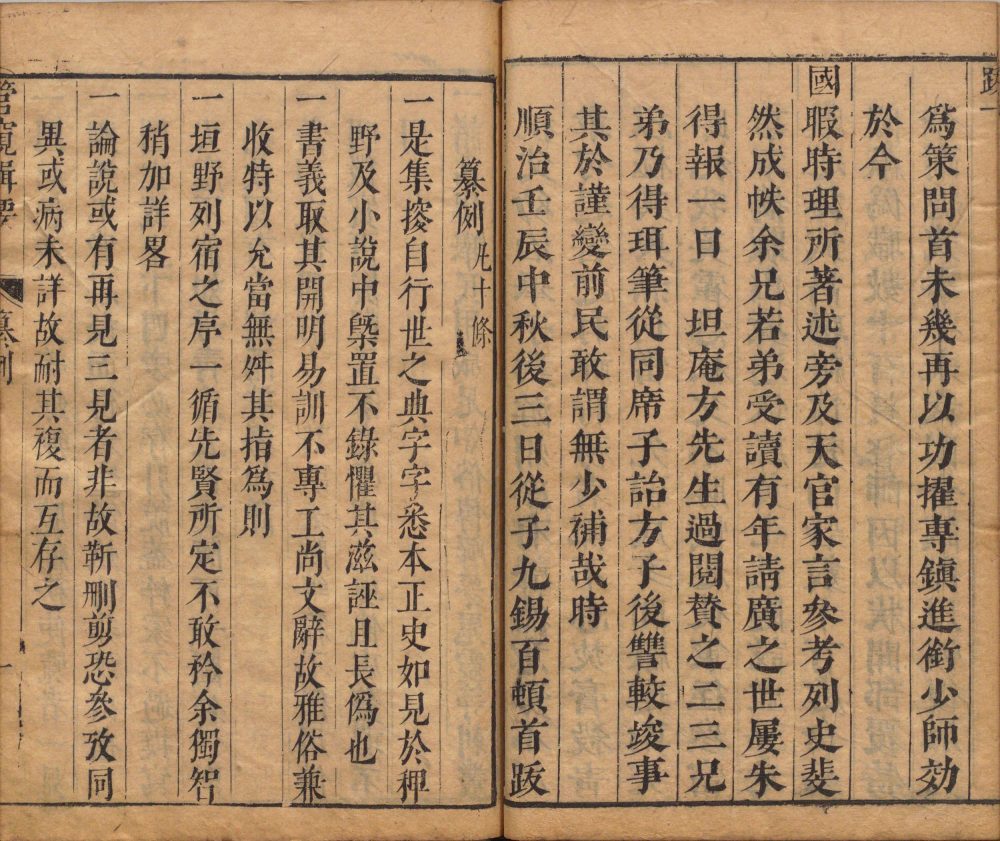 跋一
為策問首未幾再以功擢專鎮進銜少師効
於今
國暇時理所著述旁及天官家言參考列史斐
然成帙余兄若弟受讀有年請廣之世屢朱
得報一日坦庵方先生過閱賛之二三兄
弟乃得珥筆從同席子詒方子後讐較竣事
其於謹變前民敢謂無少補哉時
順治壬辰中秋後三日從子九錫百頓首跋
纂例凡十條
一是集㨿自行世之典字字悉本正史如見於稗
野及小說中槩置不錄懼其滋誣且長僞也
一書義取其開明易訓不專工尚文辭故雅俗兼
收特以允當無舛其指為則
一垣野列宿之序一循先賢所定不敢矜余獨智
稍加詳畧
一論說或有再見三見者非故靳刪剪恐參攷同
異或病未詳故耐其複而互存之
管窺輯要
纂例
一